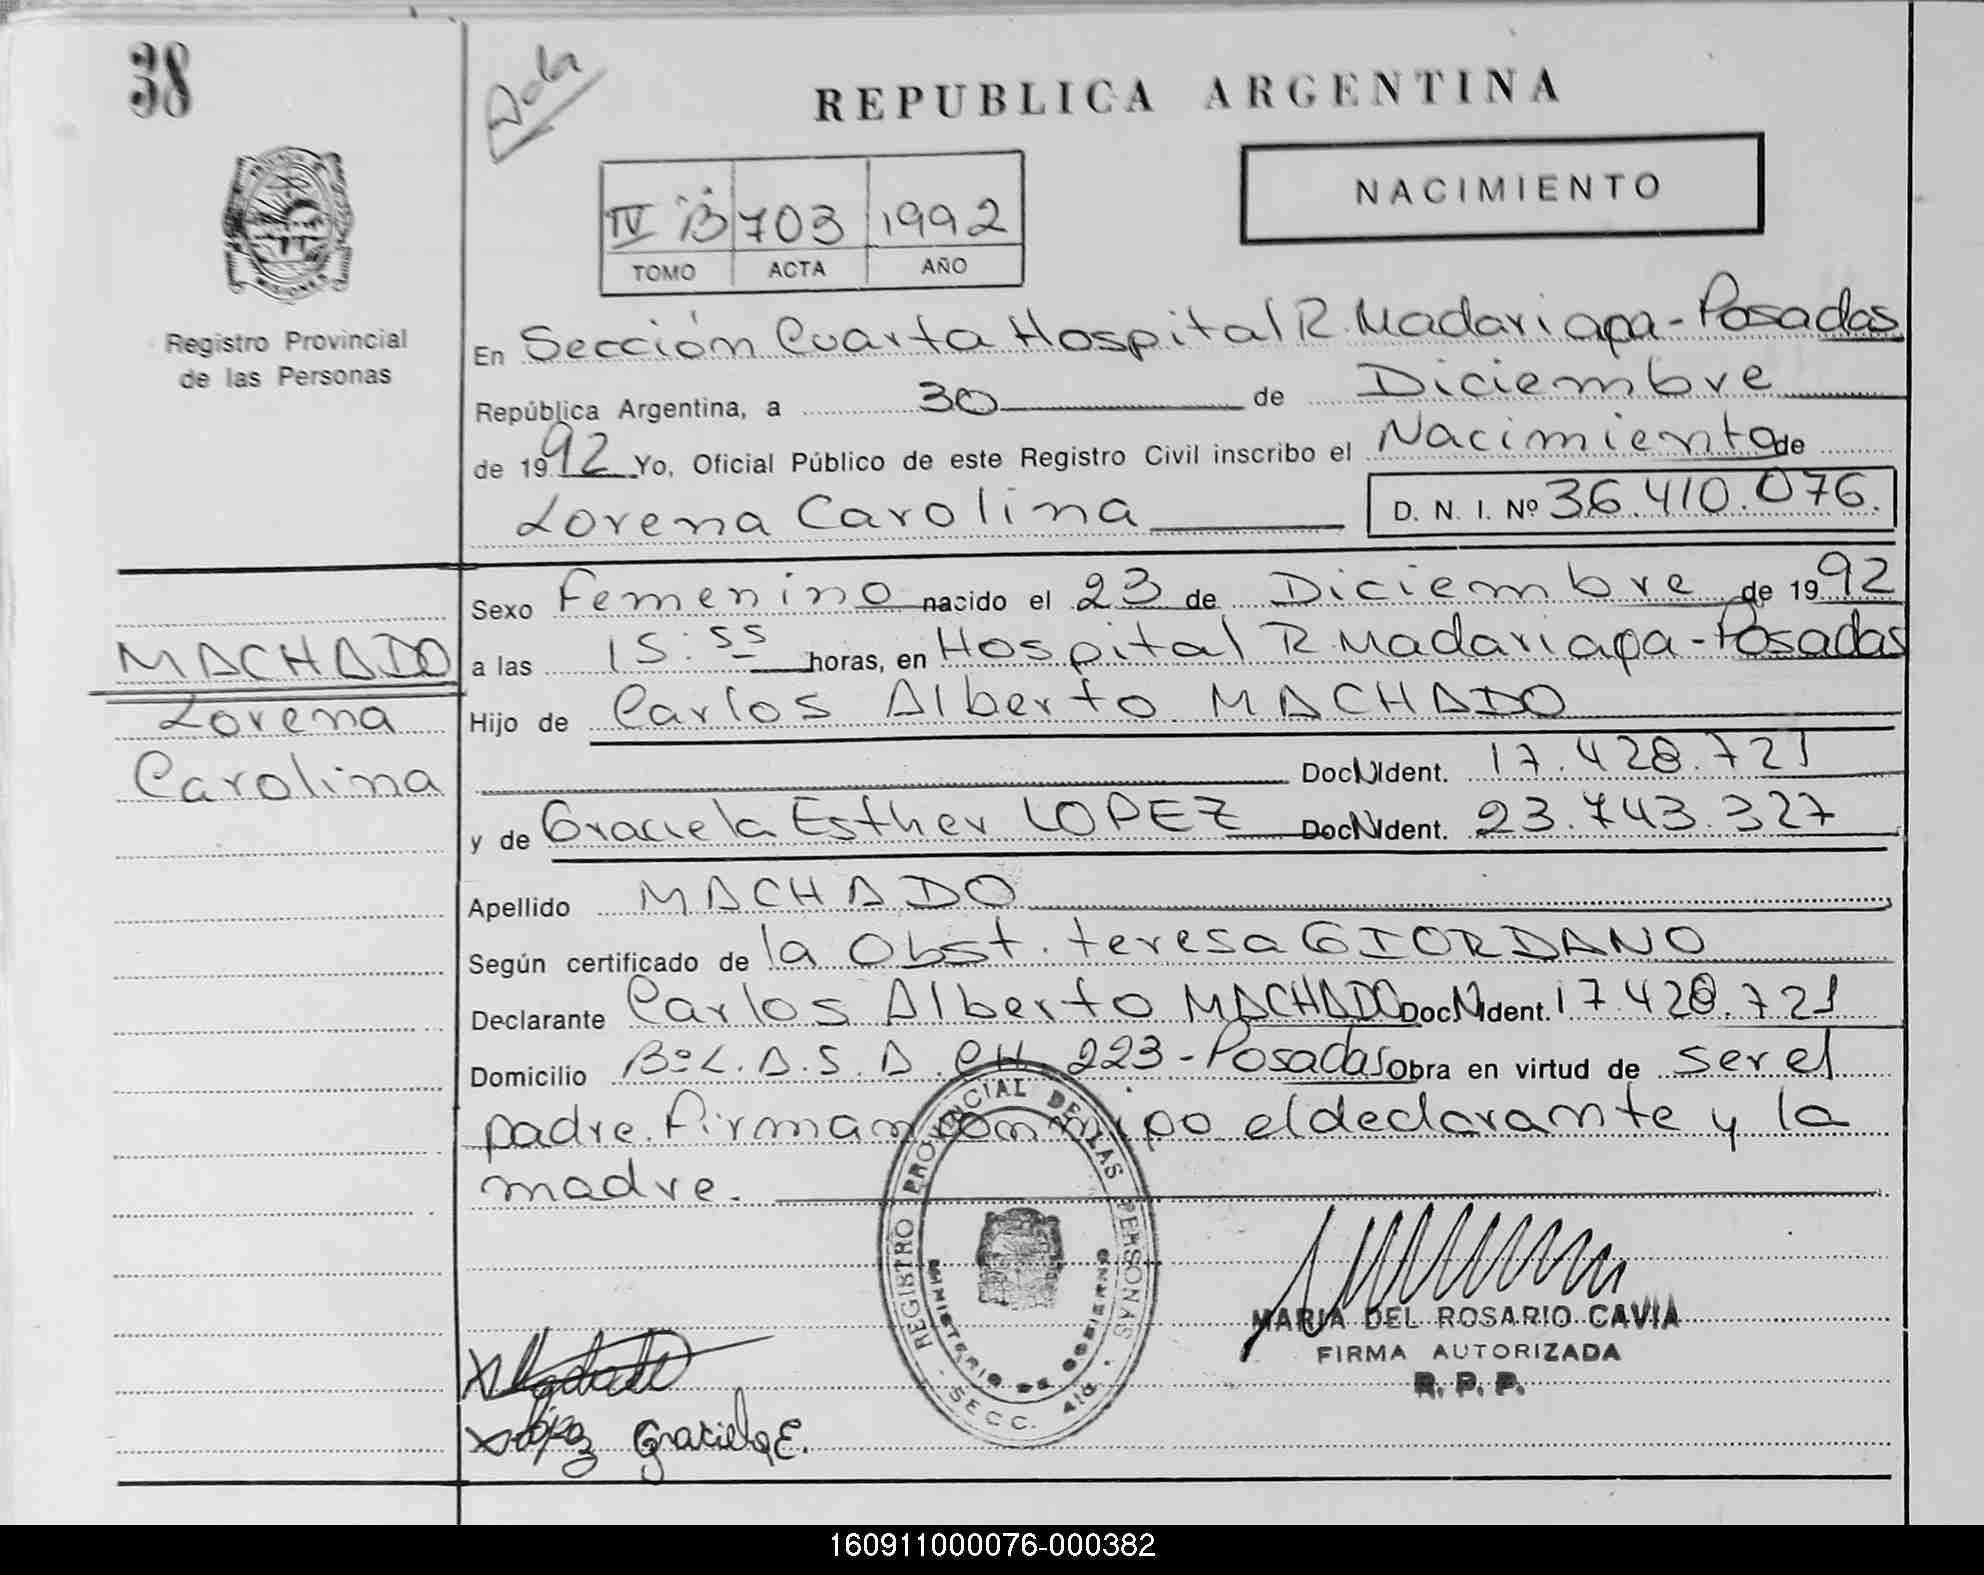 38
Dda
REPUBLICA ARGENTINA
IV B 703 1992
TOMO ACTA AÑO
NACIMIENTO
MISIONES
Registro Provincial
de las Personas
En Sección Cuarta Hospital R. Madariaga - Posadas
República Argentina, a 30 de Diciembre
de 1992 Yo, Oficial Público de este Registro Civil inscribo el Nacimiento de
Lorena Carolina D. N. I. Nº 36.410.076.
Sexo Femenino nacido el 23 de Diciembre de 1992
MACHADO
Lorena
Carolina
a las 15:55 horas, en Hospital R. Madariaga - Posadas
Hijo de Carlos Alberto MACHADO
Doc N Ident. 17.428.721
y de Graciela Esther LOPEZ Doc N Ident. 23.743.327
Apellido MACHADO
Según certificado de la Obst. teresa GIORDANO
Declarante Carlos Alberto MACHADO Doc N Ident. 17.428.721
Domicilio Bº L.A.S.A. CH. 223 - Posadas Obra en virtud de ser el
padre. Firman conmigo el declarante y la
madre.
REGISTRO PROVINCIAL DE LAS PERSONAS
MINISTERIO DE GOBIERNO
SECC. 4ta.
MARIA DEL ROSARIO CAVIA
FIRMA AUTORIZADA
R. P. P.
x Machado
x López Graciela E.
160911000076-000382